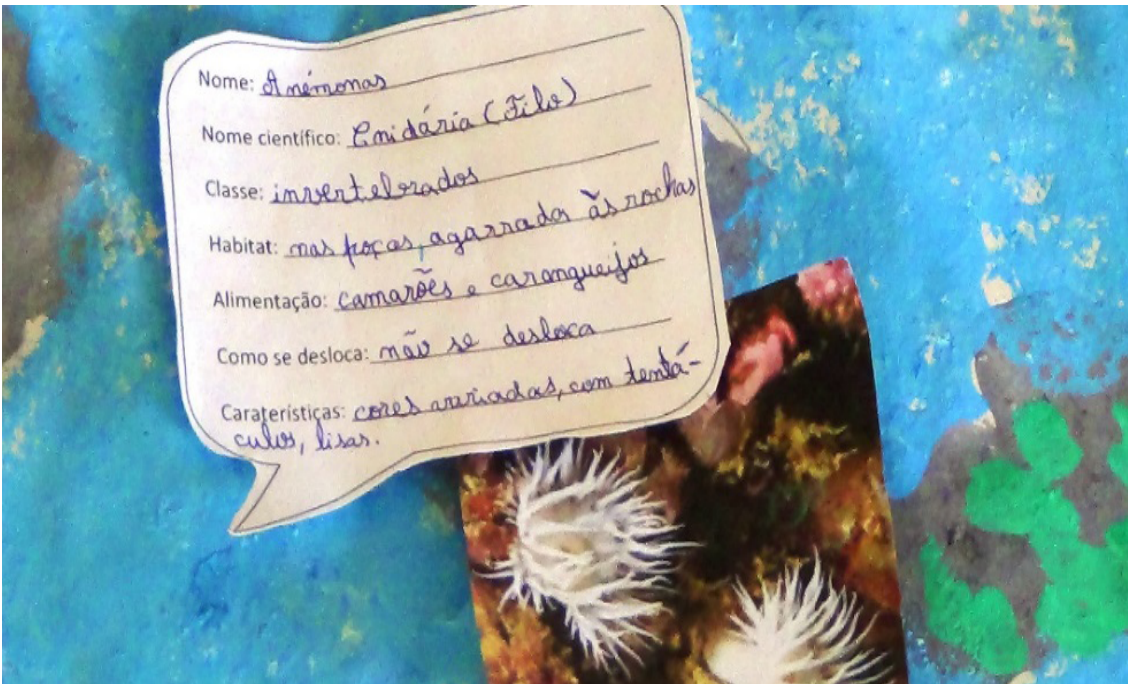 Nome: Anémonas
Nome científico: Cnidária (Filo)
Classe: invertebrados
Habitat: nas poças, agarrada às rochas
Alimentação: camarões e carangueijos
Como se desloca: não se desloca
Caraterísticas: cores variadas, com tentá-
culos, lisas.